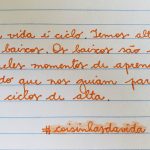 vida é ciclo. Temos alt
baixos. Os baixos são
eles momentos de apren
do que nos guiam par
ciclos de alta.
#coisinhasdavida